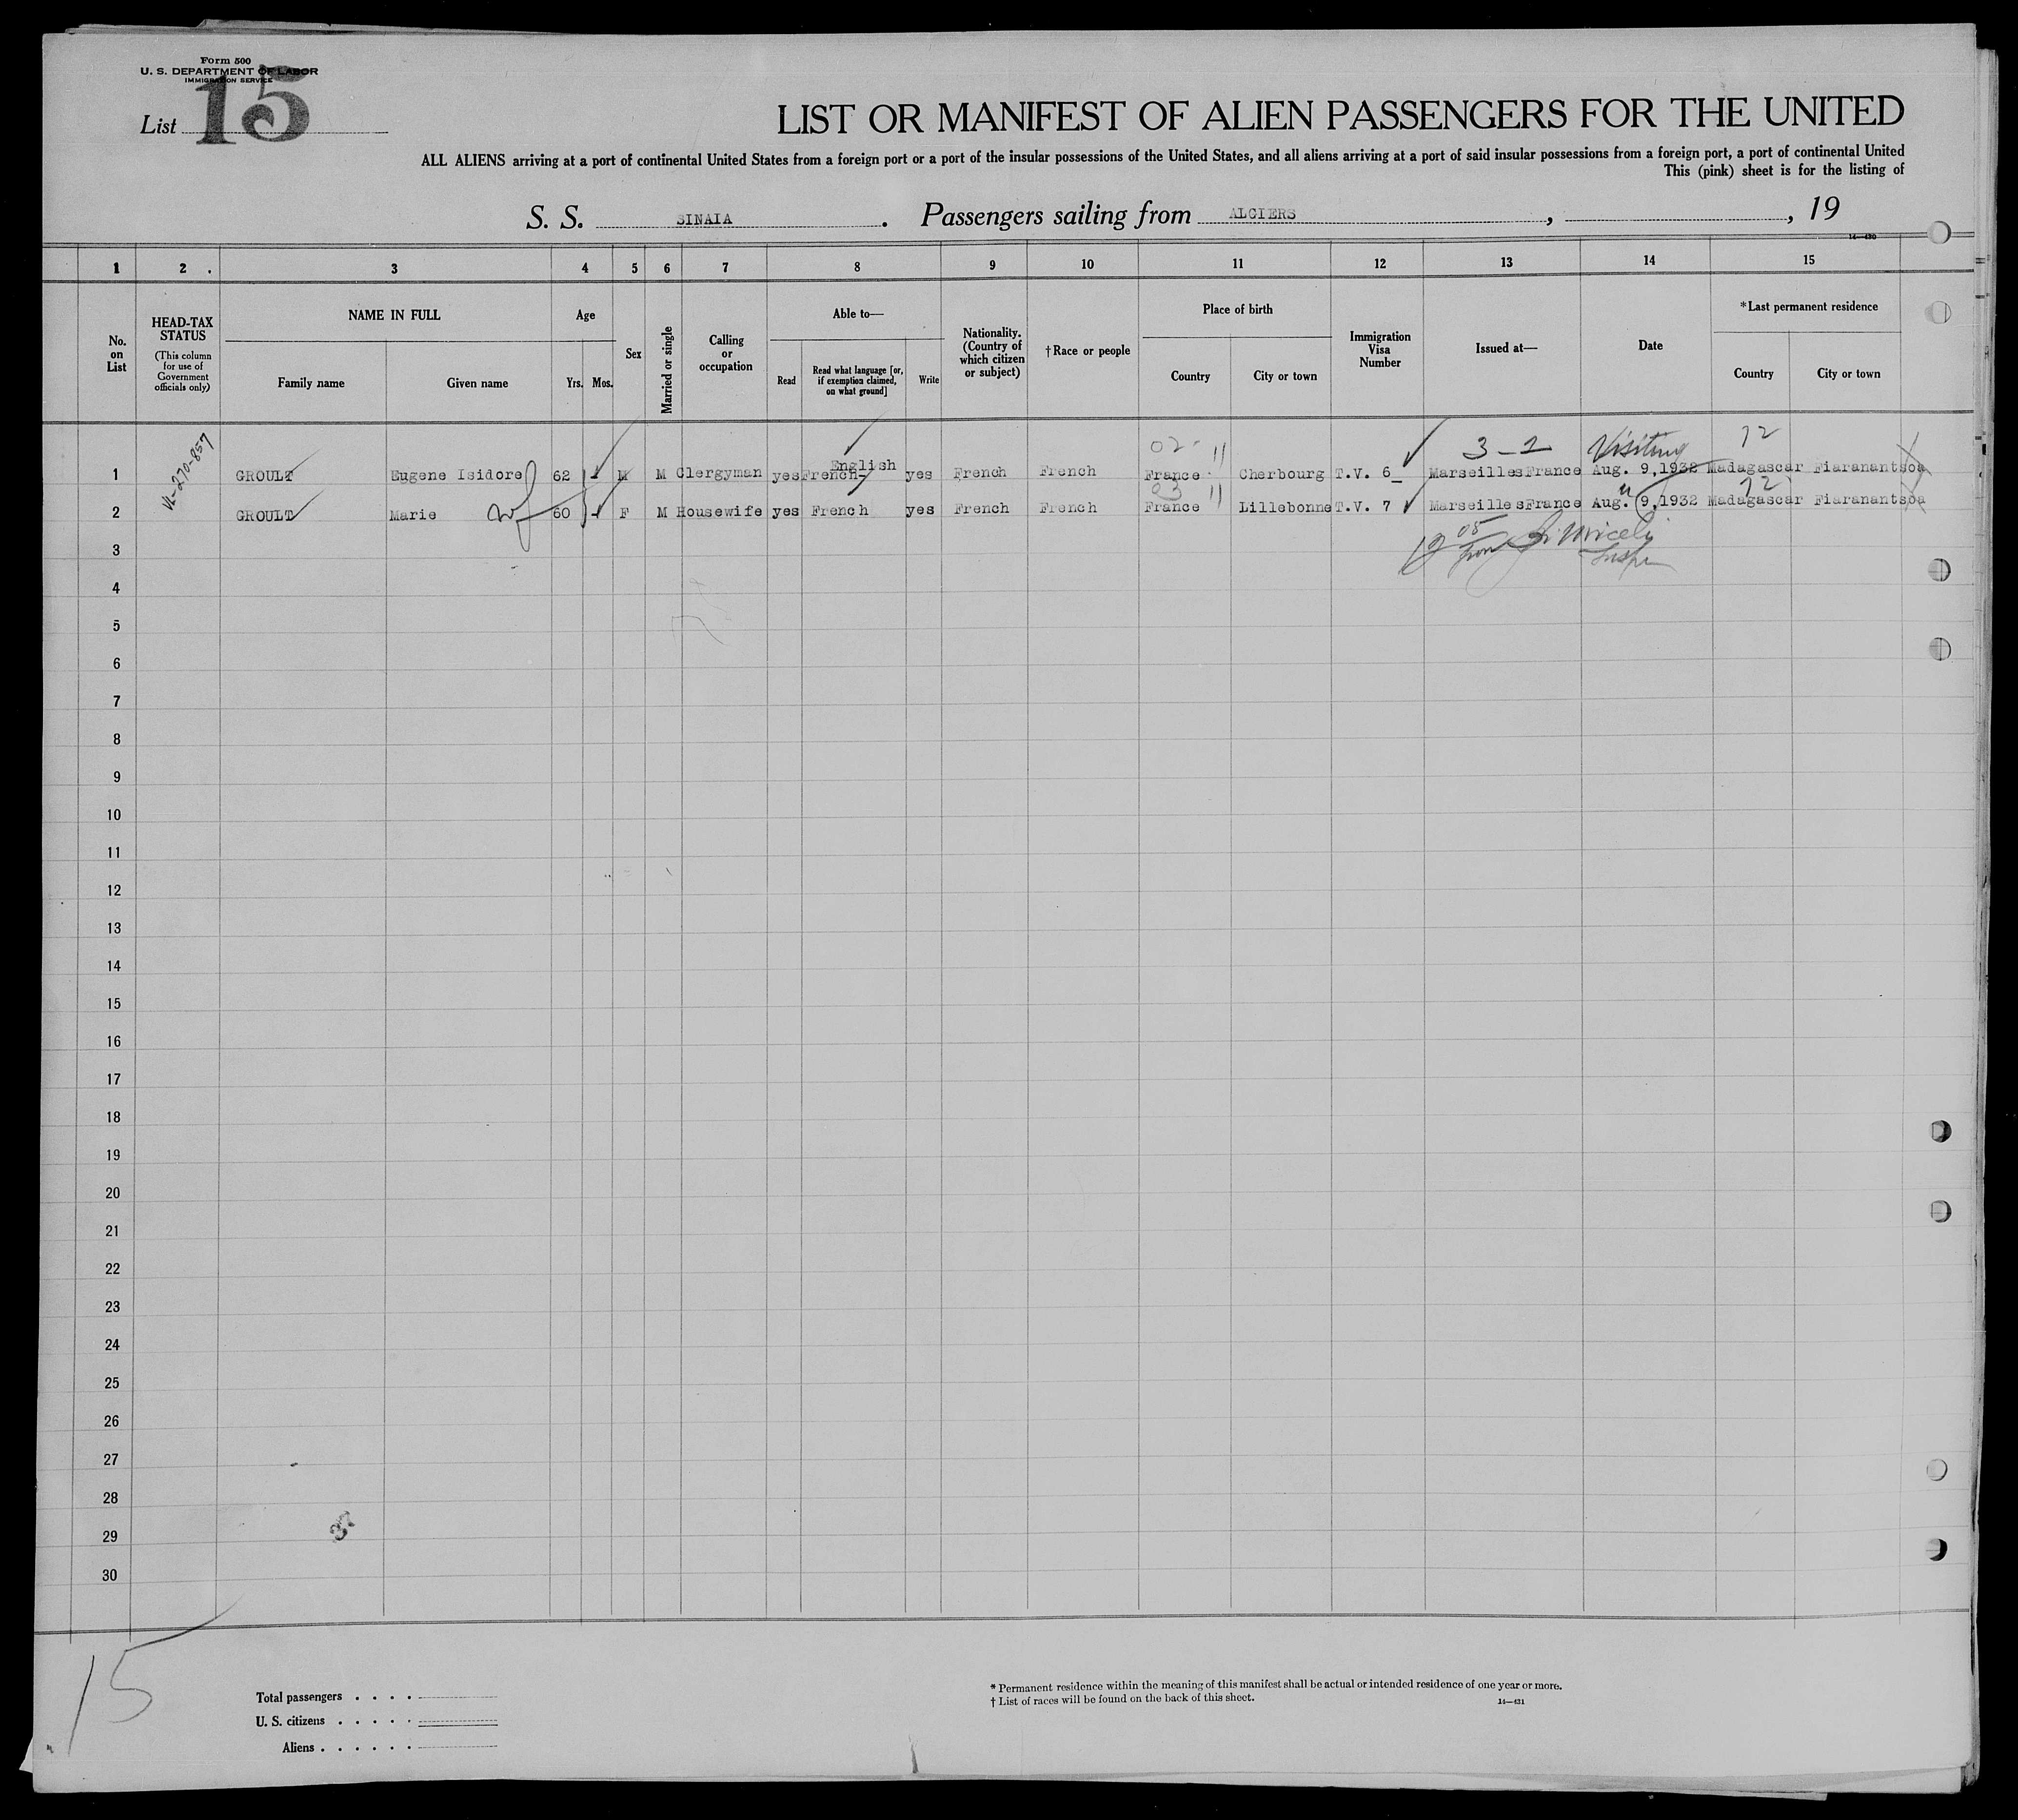 Form 500
U. S. DEPARTMENT OF LABOR
IMMIGRATION SERVICE
List 15
LIST OR MANIFEST OF ALIEN PASSENGERS FOR THE UNITED
ALL ALIENS arriving at a port of continental United States from a foreign port or a port of the insular possessions of the United States, and all aliens arriving at a port of said insular possessions from a foreign port, a port of continental United
This (pink) sheet is for the listing of
S. S. SINAIA. Passengers sailing from ALGIERS, , 19
14—430
1 2 3 4 5 6 7 8 9 10 11 12 13 14 15
No. on List
HEAD-TAX STATUS
(This column for use of Government officials only)
NAME IN FULL
Family name Given name
Age
Yrs. Mos.
Sex
Married or single
Calling or occupation
Able to—
Read
Read what language [or, if exemption claimed, on what ground]
Write
Nationality. (Country of which citizen or subject)
†Race or people
Place of birth
Country City or town
Immigration Visa Number
Issued at—
Date
*Last permanent residence
Country City or town
02 11 3-2 Visiting 72
1 GROULT Eugene Isidore 62 M M Clergyman yes French- English yes French French France Cherbourg T.V. 6 Marseilles France Aug. 9,1932 Madagascar Fiaranantsoa
03 11 72
2 GROULT Marie 60 F M Housewife yes French yes French French France Lillebonne T.V. 7 Marseilles France Aug. 9,1932 Madagascar Fiaranantsoa
3
4
5
6
7
8
9
10
11
12
13
14
15
16
17
18
19
20
21
22
23
24
25
26
27
28
29
30
15
Total passengers . . . .
U. S. citizens . . . . .
Aliens . . . . . .
* Permanent residence within the meaning of this manifest shall be actual or intended residence of one year or more.
† List of races will be found on the back of this sheet. 14—431